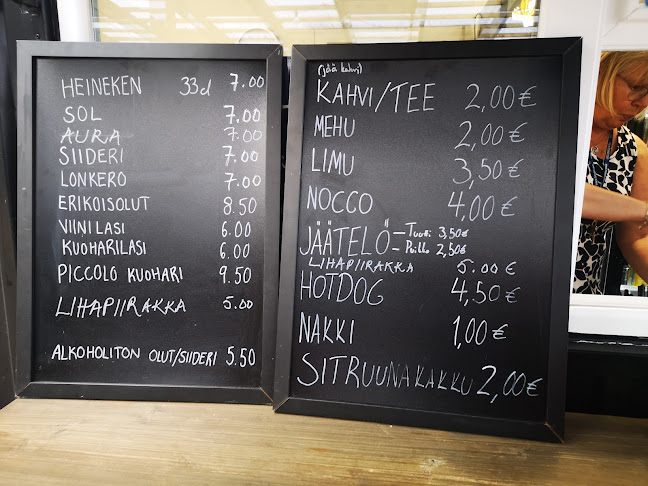 HEINEKEN 33cl 7.00
SOL 7.00
AURA 7.00
SIIDERI 7.00
LONKERO 7.00
ERIKOISOLUT 8.50
VIINILASI 6.00
KUOHARILASI 6.00
PICCOLO KUOHARI 9.50
LIHAPIIRAKKA 5.00
ALKOHOLITON OLUT/SIIDERI 5.50
(jää kahvi)
KAHVI/TEE 2,00€
MEHU 2,00€
LIMU 3,50€
NOCCO 4,00€
JÄÄTELÖ - Tuutti 3,50€
- Puikko 2,50€
LIHAPIIRAKKA 5.00 €
HOTDOG 4,50€
NAKKI 1,00€
SITRUUNAKAKKU 2,00€